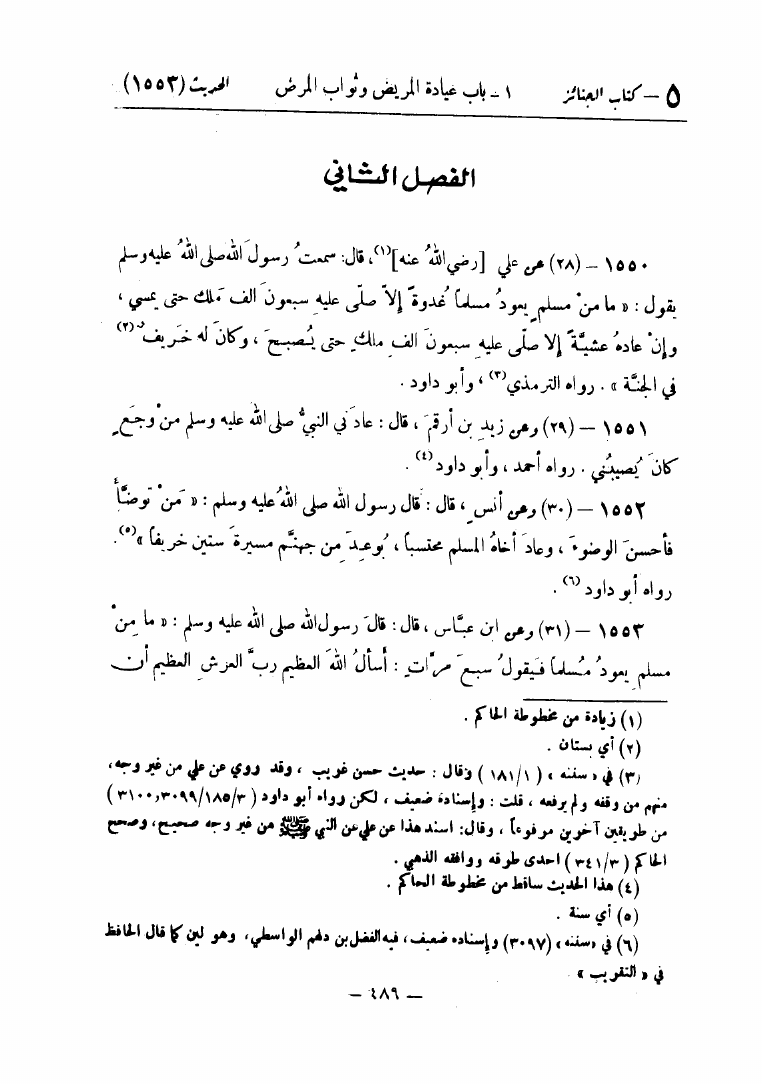 ٥ – كتاب الجنائز ١ - باب عيادة المريض وثواب المرض الحديث (١٥٥٣)
الفصل الثاني
١٥٥٠ – (٢٨) عن علي [رضي اللهُ عنه](١)، قال: سمعتُ رسولَ الله صلى اللهُ عليه وسلم
يقول: « ما منْ مسلمٍ يعودُ مسلماً غُدوةً إلاَّ صلَّى عليه سبعونَ ألف مَلك حتى يمسي،
وإنْ عادهُ عشيَّةً إلا صلَّى عليهِ سبعونَ ألف ملكٍ حتى يُصبحَ، وكانَ له خَريفٌ(٢)
في الجنَّة ». رواه الترمذي(٣)، وأبو داود.
١٥٥١ – (٢٩) وعن زيدِ بن أرقمَ، قال: عادَني النبيُّ صلى الله عليه وسلم منْ وجَعٍ
كانَ يُصيبُني. رواه أحمد، وأبو داود(٤).
١٥٥٢ – (٣٠) وعن أنسٍ، قال: قال رسول الله صلى اللهُ عليه وسلم: « مَنْ توضَّأَ
فأحسنَ الوضوءَ، وعادَ أخاهُ المسلم محتسباً، بُوعِدَ مِن جهنَّم مسيرةَ ستين خريفاً »(٥).
رواه أبو داود(٦).
١٥٥٣ – (٣١) وعن ابن عبَّاس، قال: قالَ رسول الله صلى الله عليه وسلم: « ما مِنْ
مسلمٍ يعودُ مُسلماً فيقولُ سبعَ مرَّاتٍ: أسألُ اللهَ العظيم ربَّ العرشِ العظيم أن
(١) زيادة من مخطوطة الحاكم.
(٢) أي بستان.
(٣) في « سننه » (١/ ١٨١) وقال: حديث حسن غريب، وقد روي عن علي من غير وجه،
منهم من وقفه ولم يرفعه، قلت: وإسناده ضعيف، لكن رواه أبو داود (٣/ ١٨٥/ ٣٠٩٩ و ٣١٠٠)
من طريقين آخرين مرفوعاً، وقال: اسند هذا عن علي عن النبي ﷺ من غير وجه صحيح، وصحح
الحاكم (٣/ ٣٤١) احدى طرقه ووافقه الذهبي.
(٤) هذا الحديث ساقط من مخطوطة الحاكم.
(٥) أي سنة.
(٦) في « سننه » (٣٠٩٧) وإسناده ضعيف، فيه الفضل بن دلهم الواسطي، وهو لين كما قال الحافظ
في « التقريب ».
– ٤٨٩ –